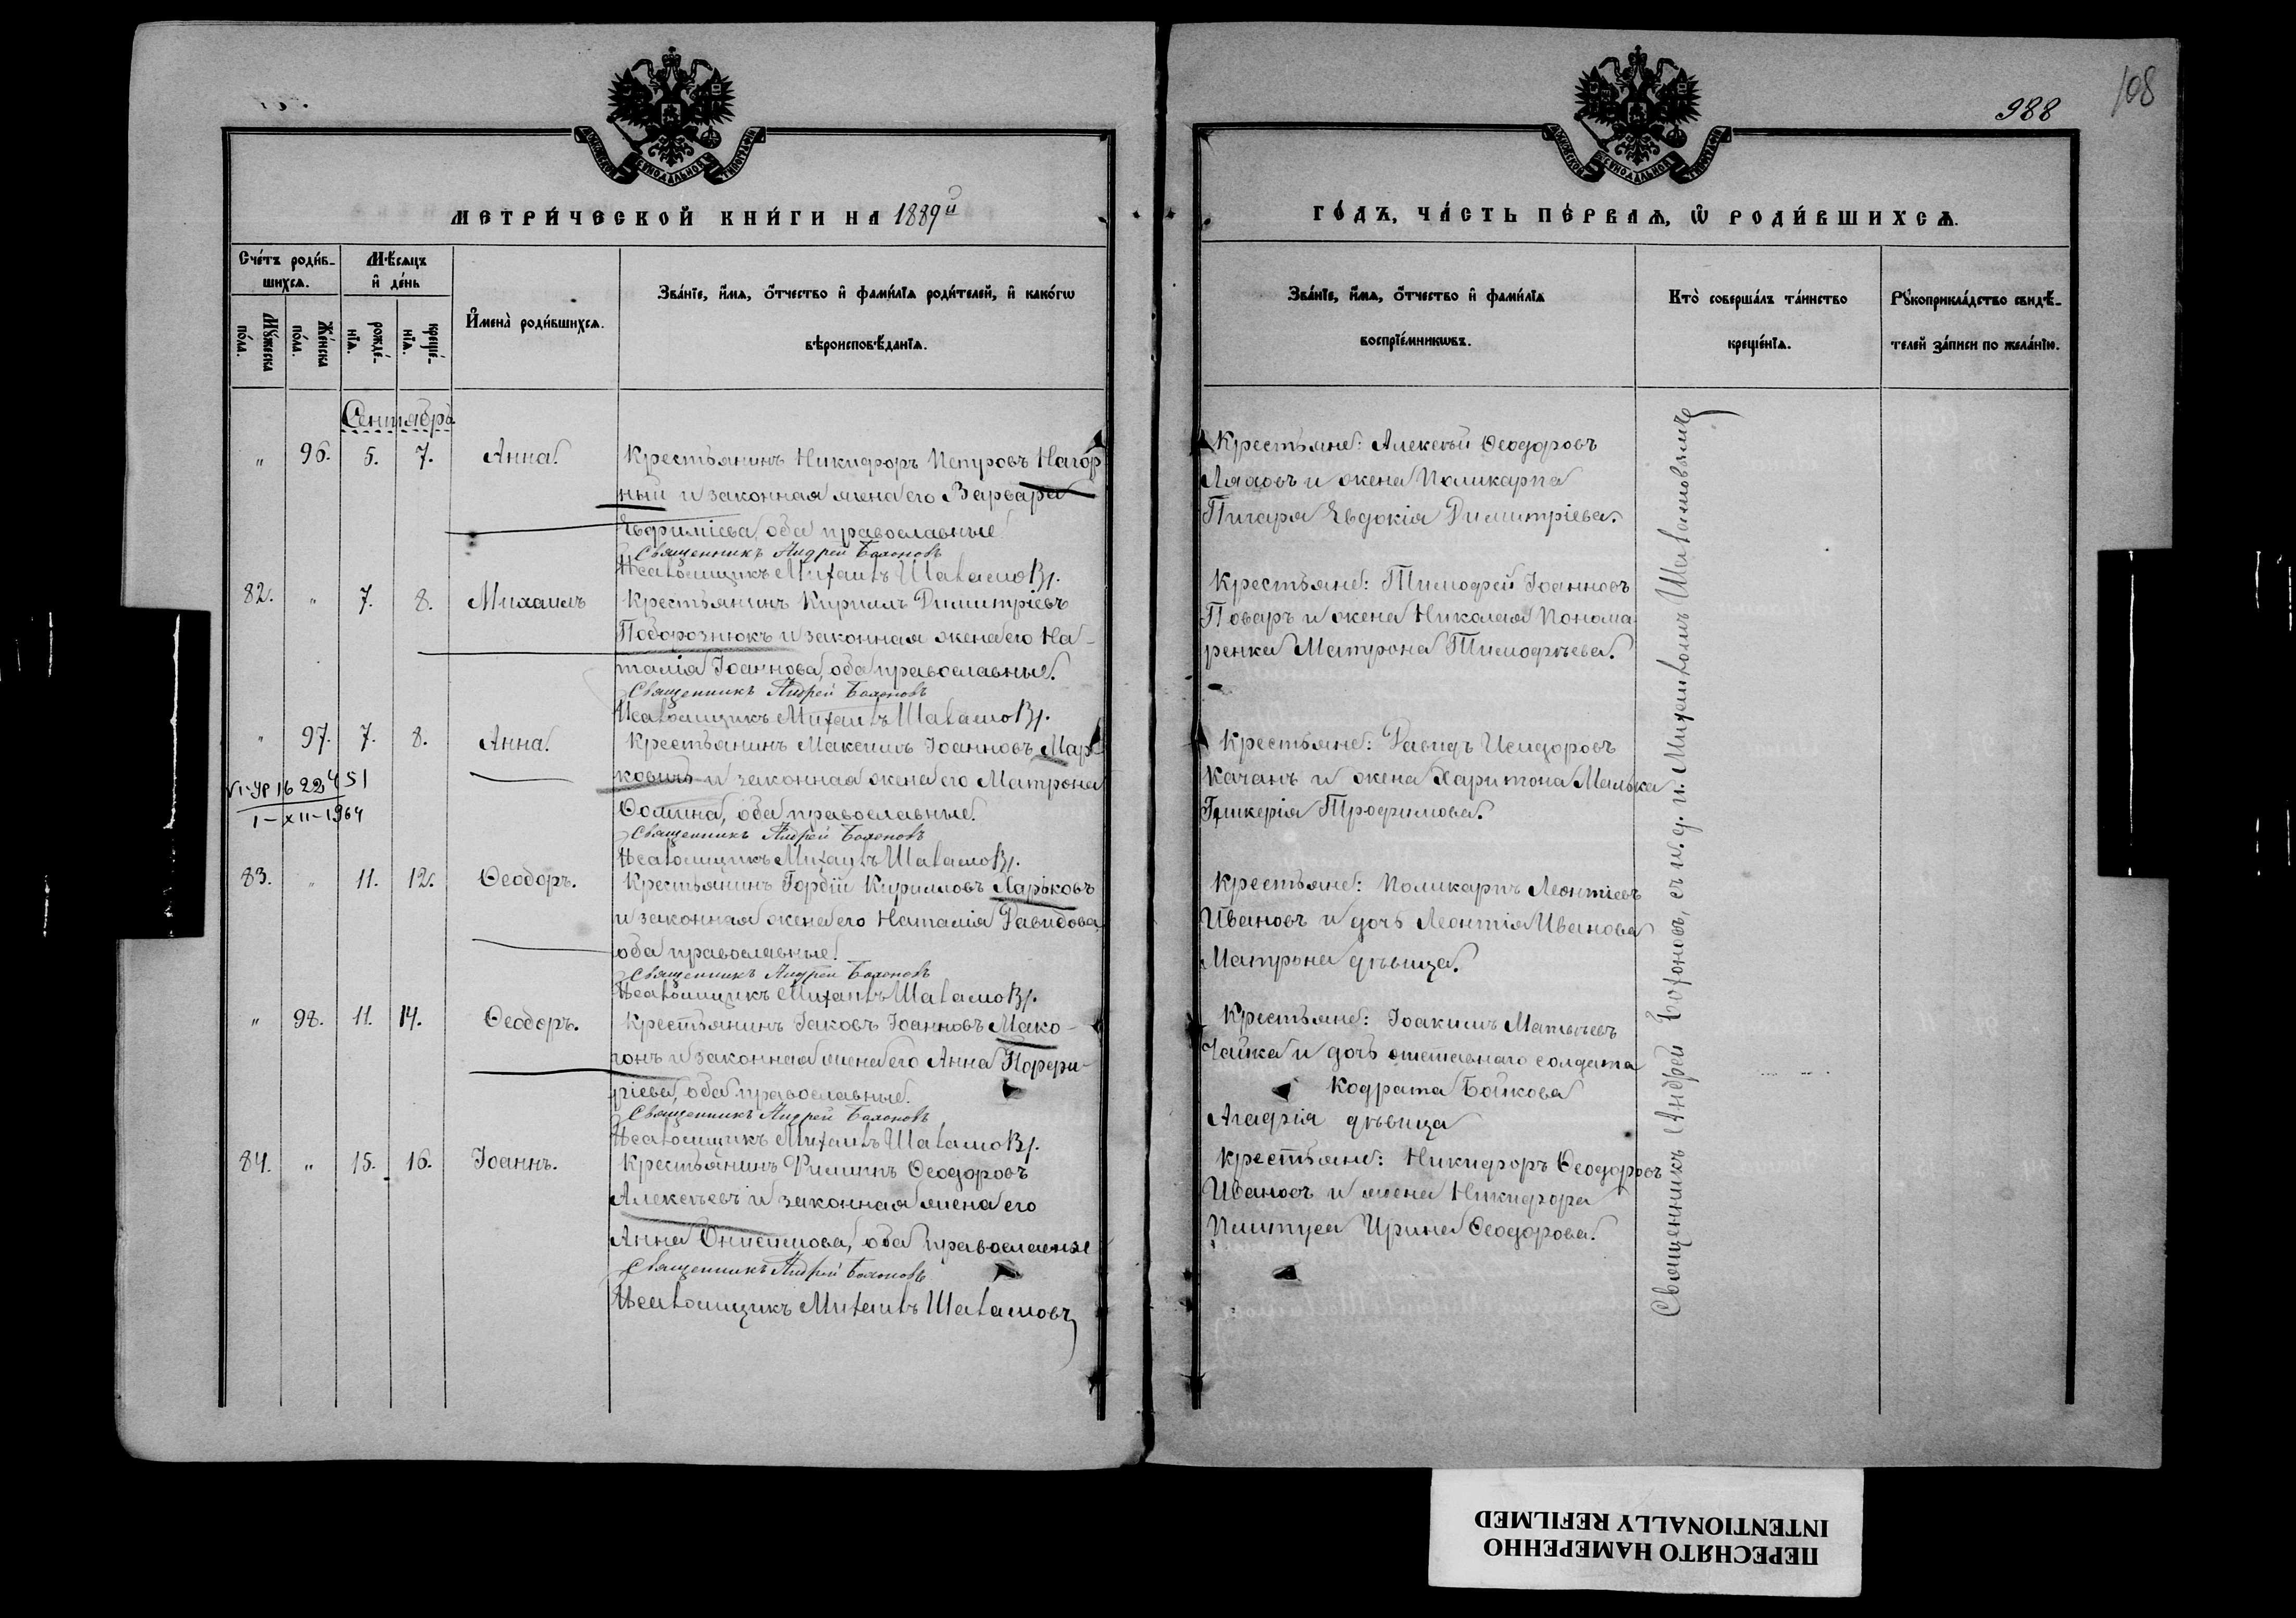 988
108
МЕТРИ́ЧЕСКОЙ КНИ́ГИ НА 1889й
ГО́ДЪ, ЧА́СТЬ ПЕ́РВАѦ, Ѽ РОДИ́ВШИХСѦ.
Сче́тъ роди́в-
шихсѧ.
Мꙋ́жеска
по́ла.
Же́нска
по́ла.
Мѣ́сѧцъ
и҆ де́нь
рожде́-
нїѧ.
креще́-
нїѧ.
И҆мена̀ роди́вшихсѧ.
Зва́нїе, и҆́мѧ, ѻ҆́тчество и҆ фами́лїѧ роди́телей, и҆ како́гѡ
вѣроисповѣ́данїѧ.
Зва́нїе, и҆́мѧ, ѻ҆́тчество и҆ фами́лїѧ
воспрїе́мникѡвъ.
Кто̀ соверша́лъ та́инство
креще́нїѧ.
Рꙋкоприкла́дство свидѣ́-
телей за́писи по жела́нїю.
Сентябрь
" 96. 5. 7. Анна.
Крестьянинъ Никифоръ Петровъ Нагор
ный и законная жена его Варвара
Евфиміева, оба православные.
Священникъ Андрей
Псаломщикъ Михаилъ Шаламовъ.
Крестьяне: Алексѣй Ѳеодоровъ
и жена Поликарпа
Евдокія Димитріева.
82. " 7. 8. Михаилъ
Крестьянинъ Кирилъ Димитріевъ
Подорознюкъ и законная жена его На-
талія Іоаннова, оба православные.
Священникъ Андрей
Псаломщикъ Михаилъ Шаламовъ.
Крестьяне: Тимофей Іоанновъ
Поваръ и жена Николая Понома
ренка Матрона Тимофѣева.
" 97. 7. 8. Анна.
Крестьянинъ Максимъ Іоанновъ Мар
ковичъ и законная жена его Матрона
Ѳомина, оба православные.
Священникъ Андрей
Псаломщикъ Михаилъ Шаламовъ.
Крестьяне: Давидъ Исидоровъ
Качанъ и жена Харитона
Гликерія Трофимова.
VI-УР 16 22451
1-XII-1964
83. " 11. 12. Ѳеодоръ.
Крестьянинъ Гордій Кирилловъ Ларьковъ
и законная жена его Наталія Давидова,
оба православные.
Священникъ Андрей
Псаломщикъ Михаилъ Шаламовъ.
Крестьяне: Поликарпъ Леонтіевъ
Ивановъ и дочь Леонтія Иванова
Матрона дѣвица.
" 98. 11. 14. Ѳеодоръ.
Крестьянинъ Іаковъ Іоанновъ Мако-
гонъ и законная жена его Анна Порфи-
ріева, оба православные.
Священникъ Андрей
Псаломщикъ Михаилъ Шаламовъ.
Крестьяне: Іоакимъ Матѳѣевъ
Чайка и дочь отставнаго солдата
Кодрата Бойкова
Агафія дѣвица
84. " 15. 16. Іоаннъ.
Крестьянинъ Филиппъ Ѳеодоровъ
Алексѣевъ и законная жена его
Анна Онисимова, оба православные
Священникъ Андрей
Псаломщикъ Михаилъ Шаламовъ
Крестьяне: Никифоръ Ѳеодоровъ
Ивановъ и жена Никифора
Ирина Ѳеодорова.
Священникъ Андрей съ и. д. п. Михаиломъ Шаламовымъ
ПЕРЕСНЯТО НАМЕРЕННО
INTENTIONALLY REFILMED